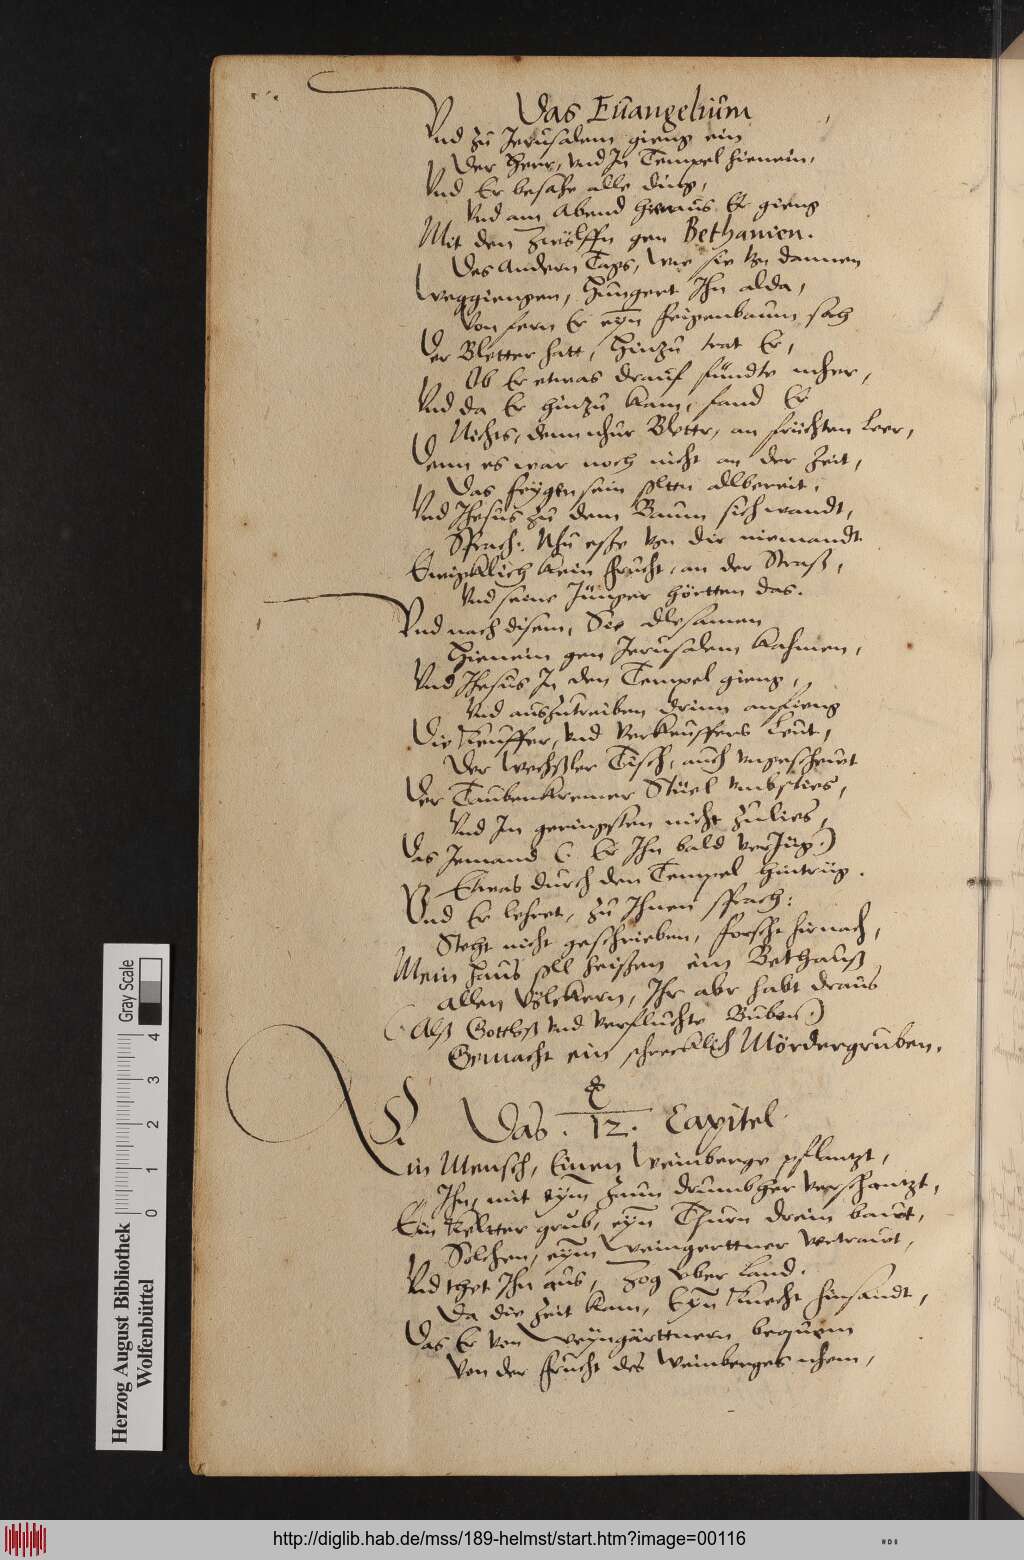 Das Euangelium
Vnd zu Jerusalem gieng ein
Der Herr, vnd In Tempel hienein,
Vnd Er besahe alle ding,
Vnd am Abend heraus Er gieng
Mit den Zwölffn gen Bethanien.
Des Andern Tags, wie sie von dannen
Weggiengen, Hungert Ihn alda,
Von fern Er eyn feigenbaum sah
Der Bletter hatt, Hinzu trat Er,
Ob Er etwas drauf fündte nher,
Vnd da Er hinzu kam, fand Er
Nichts, denn nhur Blettr, an früchten Leer,
Denn es war noch nicht an der Zeit,
Das feygen sein sltn allbereit,
Vnd Jhesus zu dem Baum sich wandt,
Sprach: Nhu esse von dir niemandt
Ewigklich kein frucht, an der Straß,
Vnd seine Jünger hörtten das.
Vnd nach disem, Sie allesamen
Hienein gen Jerusalem kahmen,
Vnd Jhesus In den Tempel gieng,
Vnd auszutreiben drinn anfieng
Die Keuffer, vnd Verkeuffers Leut,
Der Wechßler Tisch, auch vngescheuet
Der Taubenkremer Stüel vmbsties,
Vnd Im geringsten nicht zulies,
Das Jemand (: Er Ihn bald verJüg :)
Etwas durch den Tempel hintrüg.
Vnd Er lehret, zu Ihnen sprach:
Steht nicht geschrieben, forscht hirnach,
Mein Haus soll heissen ein Bethauß
allen Völckern, Ihr abr habt draus
(: Alß Gottloß vnd verfluchte Buben :)
Gemacht ein schrecklich Mördergruben.
Das . 12 . Capitel
Ein Mensch, Einen Weinberge pflantzt,
Ihn, mit eym Zaun drumbher verschantzt,
Ein Keltter grub, eyn Thurn drein bauet,
Solchen, eym Weingerttner vertrauet,
Vnd thet Ihn aus, Zog vber Land.
Da die Zeit kam, Eyn Knecht hinsandt,
Das Er von Weyngärttnern bequem
Von der Frucht des Weinberges nhem,
Gray Scale
4
3
2
1
0
Herzog August Bibliothek
Wolfenbüttel
http://diglib.hab.de/mss/189-helmst/start.htm?image=00116